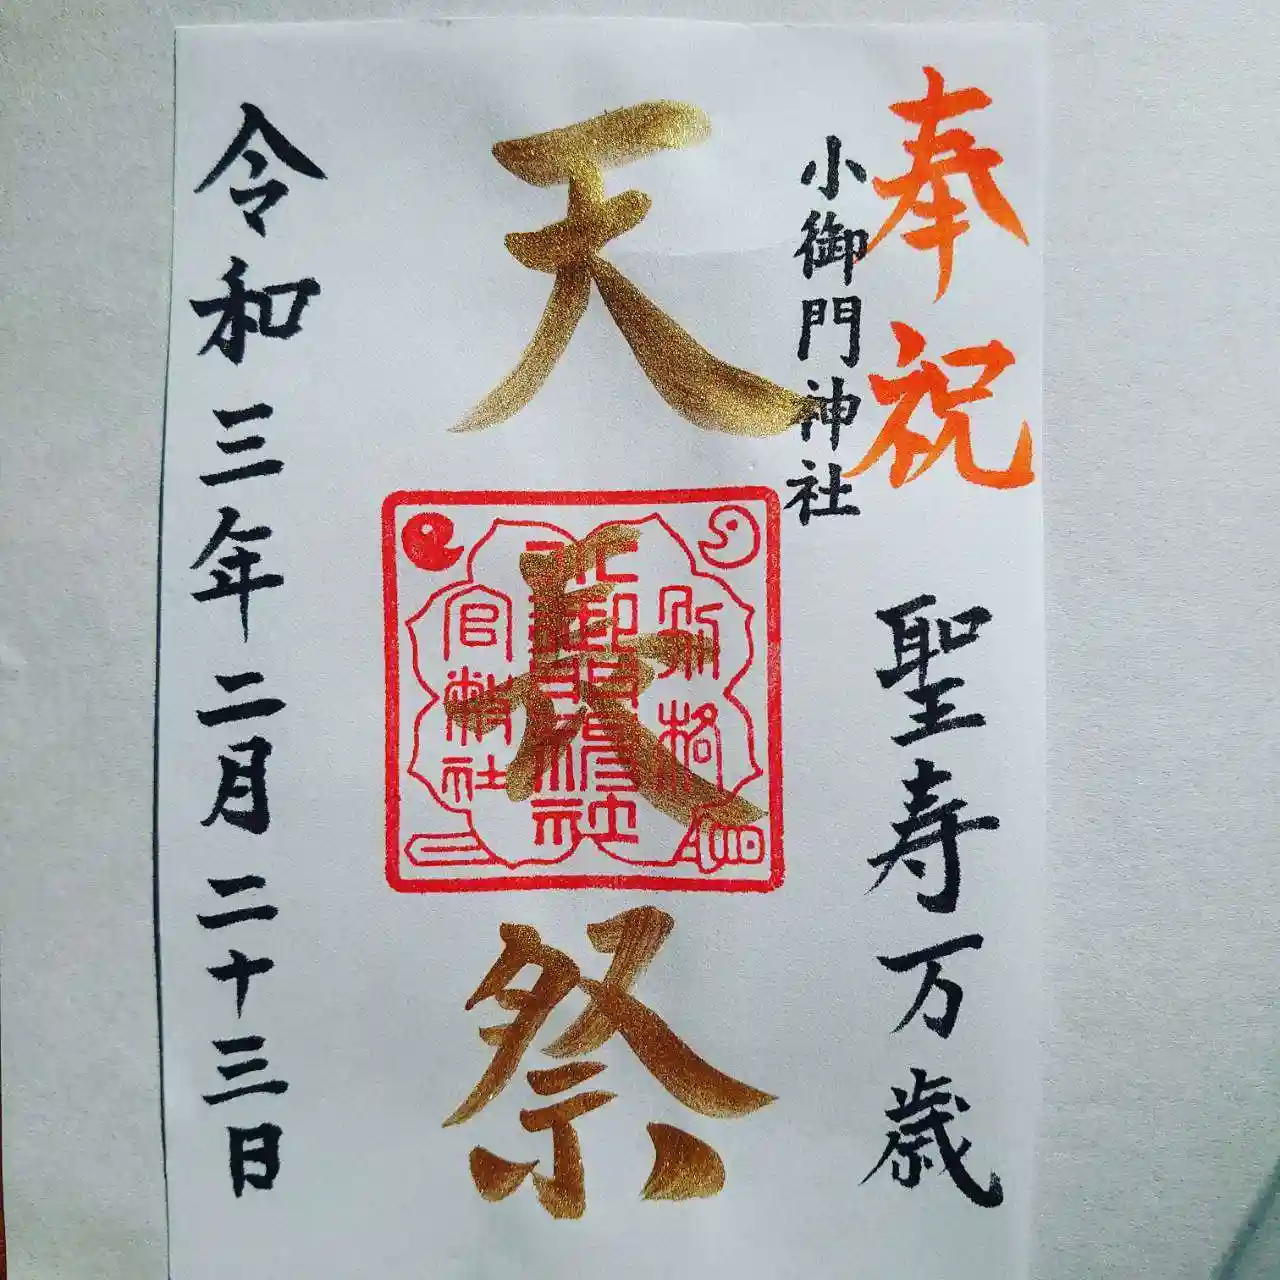 奉祝 聖寿万歳
小御門神社
天長祭
別格
小御門神社
官幣社
令和三年二月二十三日